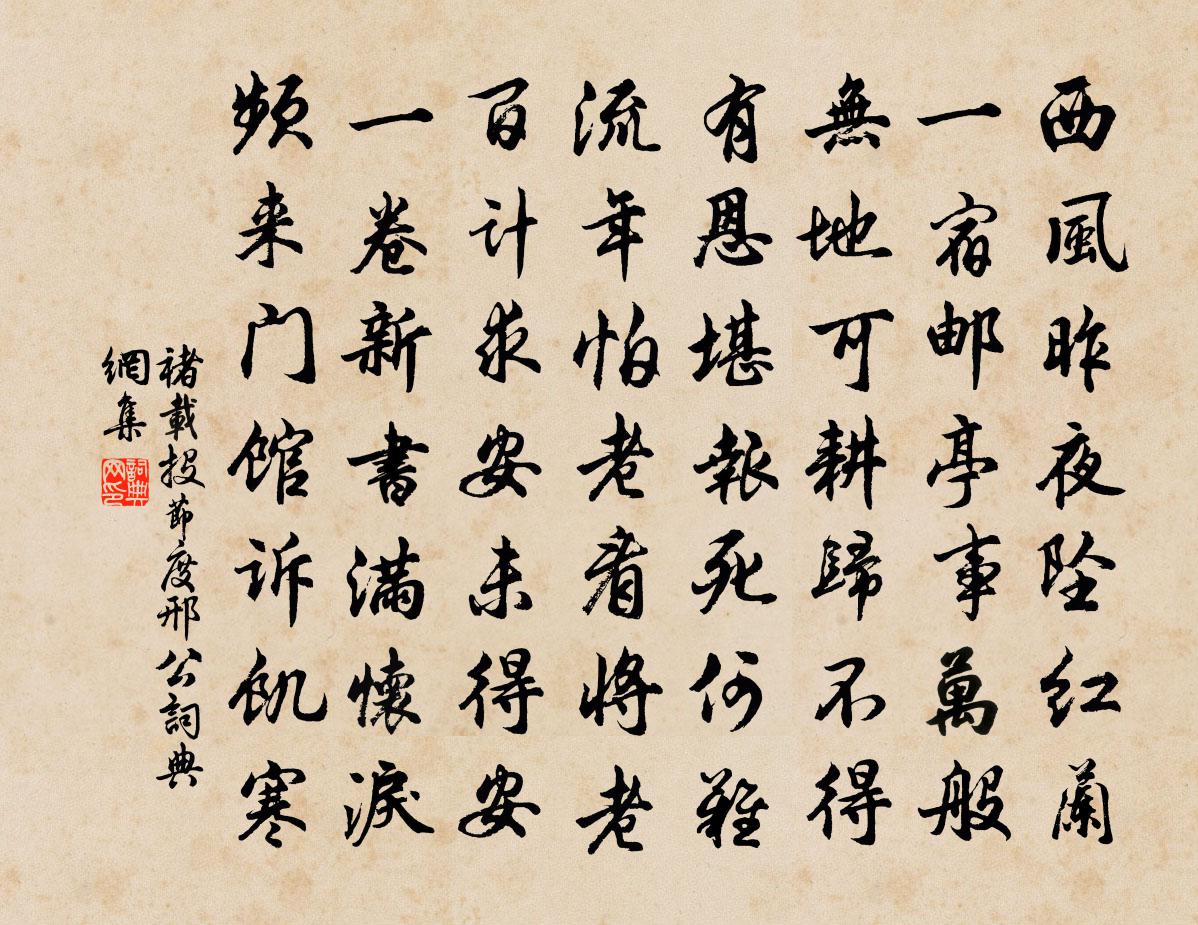 西風昨夜坠红蘭
一宿邮亭事萬般
無地可耕歸不得
有恩堪報死何難
流年怕老看将老
百计求安未得安
一卷新書满懷淚
频来门馆诉饥寒
褚載投節度邢公詞典
網集
詞典网印